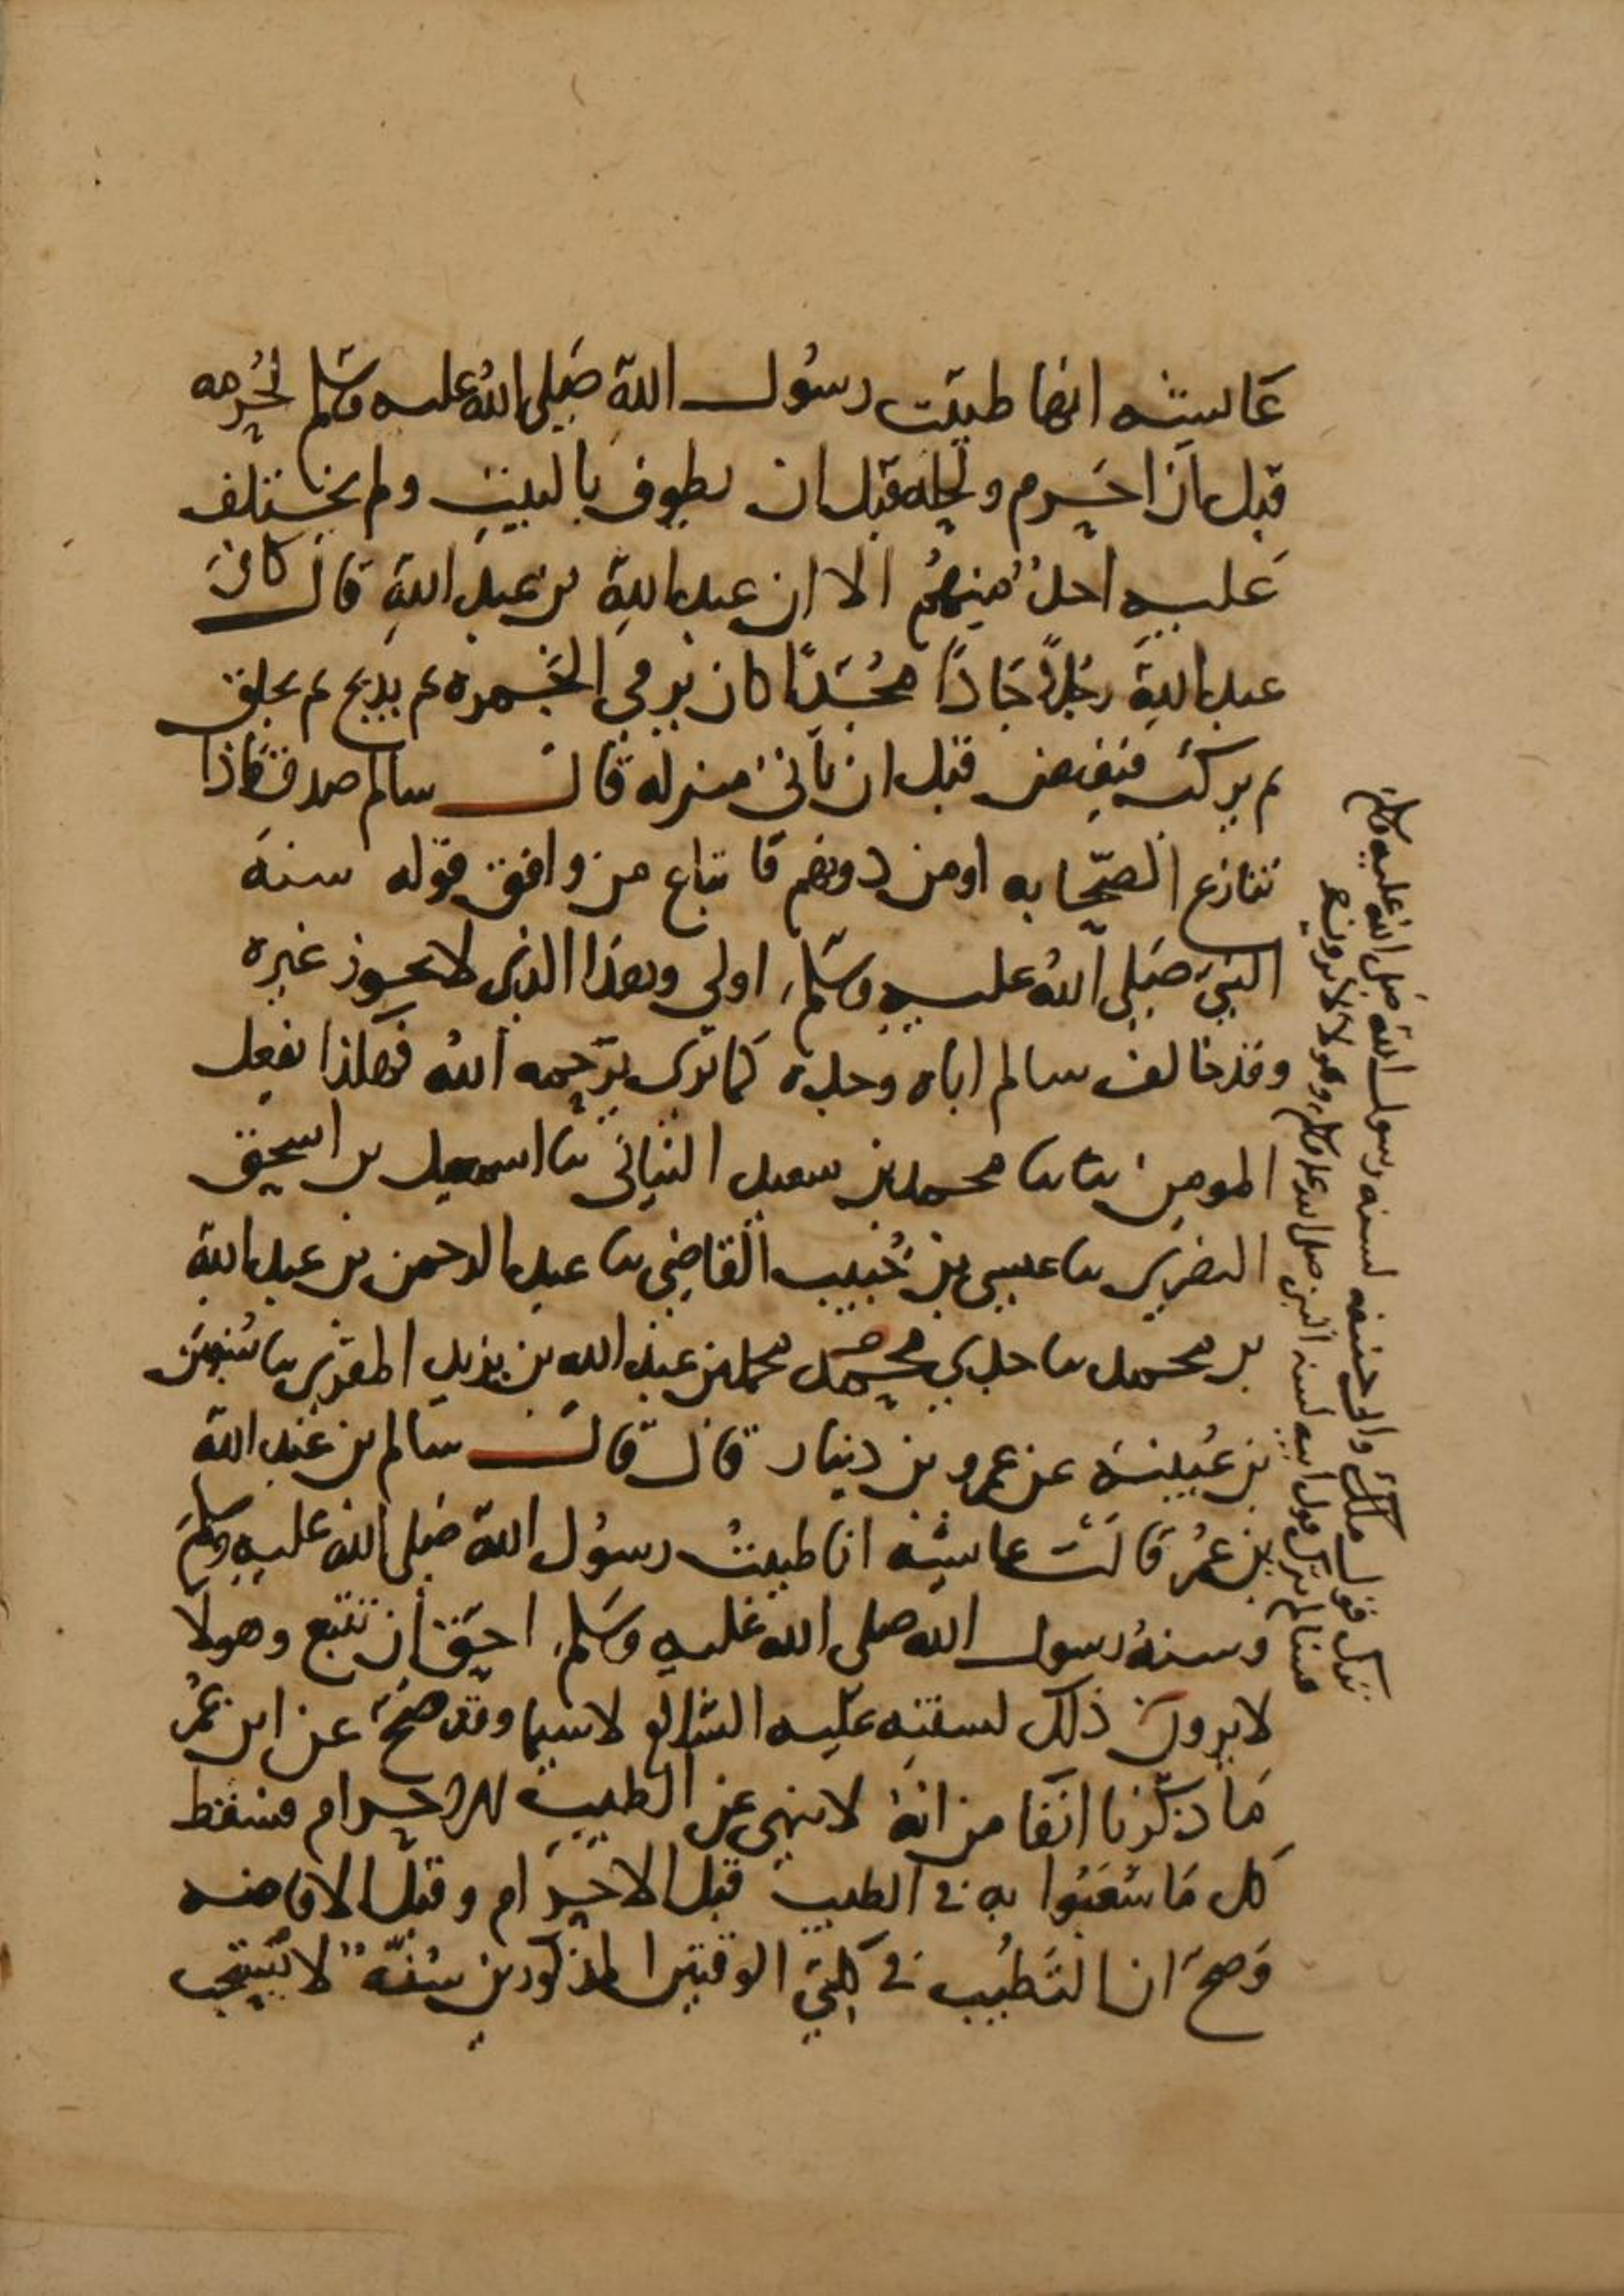 عايشه انها طيبت رسول الله صلى الله عليه وسلم لحرمه
قبل ان احرم ولحله قبل ان يطوف بالبيت ولم يختلف
عليه احد منهم الا ان عبد الله بن عبد الله قال كان
عبد الله رجلا جادا مجدا كان يرمي الجمره ثم يذبح ثم يحلق
ثم يركب فيفيض قبل ان ياتي منزله قال سالم صدق فاذا
تنازع الصحابه او من دونهم فاتباع من وافق قوله سنة
النبي صلى الله عليه وسلم اولى وهذا الذي لا يجوز غيره
وقد خالف سالم اباه وجده كما ترى يرحمه الله فهكذا نفعل
المومن نا محمد بن سعيد النباتي نا اسمعيل بن اسحق
النضري نا عيسى بن حبيب القاضي نا عبد الرحمن بن عبد الله
بن محمد نا جدي محمد بن عبد الله بن يزيد المقري نا سفين
بن عيينة عن عمرو بن دينار قال قال سالم بن عبد الله
بن عمر قالت عايشه انا طيبت رسول الله صلى الله عليه وسلم
وسنة رسول الله صلى الله عليه وسلم احق ان تتبع وهولا
لا يرون ذلك لسنته عليه السلام لا سيما وقد صح عن ابن عمر
ما ذكرنا انفا من انه لا ينهى عن الطيب للاحرام فسقط
كل ما شغبوا به في الطيب قبل الاحرام وقبل الافاضه
وصح ان التطيب في كلتي الوقتين المذكورين سنة لا يستحب
فسالم ترك قول ابيه لسنة النبي صلى الله عليه وسلم وهولا لا يرون
ترك قول ملك وابي حنيفه لسنة رسول الله صلى الله عليه وسلم